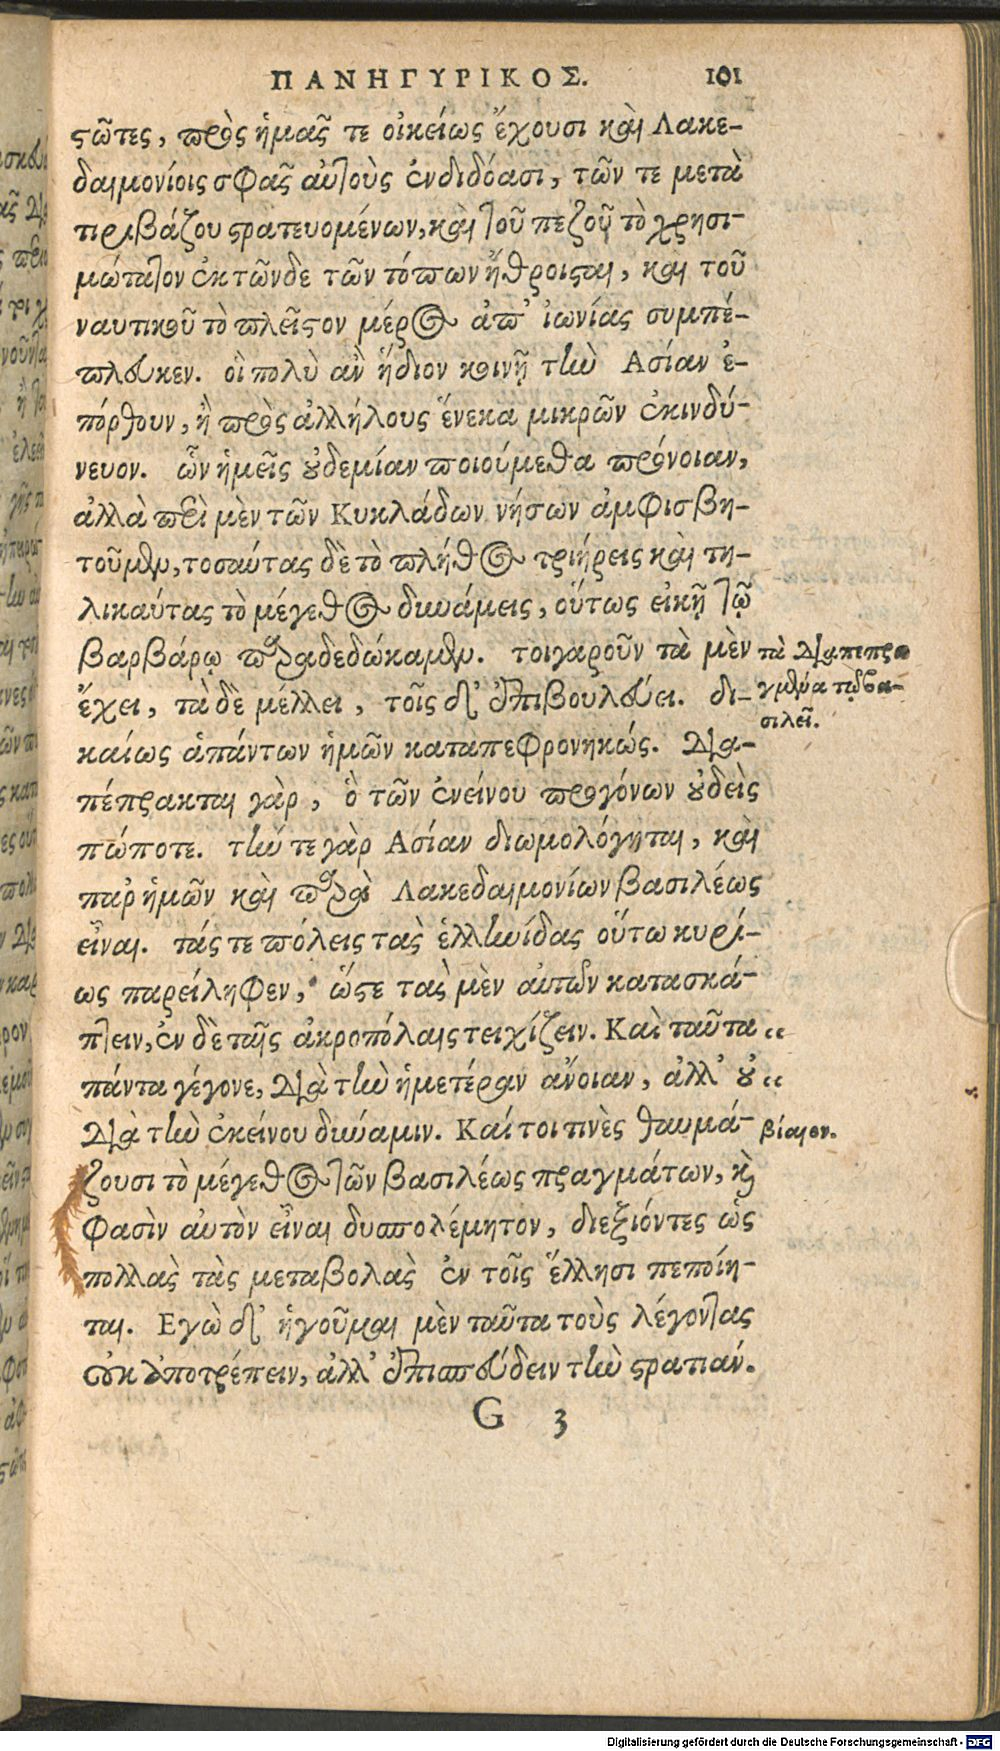 ΠΑΝΗΓΥΡΙΚΟΣ. 101
ϛῶτες, πρὸς ἡμᾶς τε οἰκείως ἔχουσι καὶ Λακε-
δαιμονίοις σφᾶς αὐτοὺς ἐνδιδόασι, τῶν τε μετὰ
τιριβάζου ϛρατευομένων, καὶ τοῦ πεζοῦ τὸ χρησι-
μώτατον ἐκ τῶνδε τῶν τόπων ἤθροιϛαι, καὶ τοῦ
ναυτικοῦ τὸ πλεῖϛον μέρος ἀπ’ ἰωνίας συμπέ-
πλευκεν. οἳ πολὺ ἂν ἥδιον κοινῇ τὴν Ασίαν ἐ-
πόρθουν, ἢ πρὸς ἀλλήλους ἕνεκα μικρῶν ἐκινδύ-
νευον. ὧν ἡμεῖς οὐδεμίαν ποιούμεθα πρόνοιαν,
ἀλλὰ περὶ μὲν τῶν Κυκλάδων νήσων ἀμφισβη-
τοῦμεν, τοσαύτας δὲ τὸ πλήθος τριήρεις καὶ τη-
λικαύτας τὸ μέγεθος δυνάμεις, οὕτως εἰκῇ τῷ
βαρβάρῳ παραδεδώκαμεν. τοιγαροῦν τὰ μὲν
ἔχει, τὰ δὲ μέλλει, τοῖς δ’ ἐπιβουλεύει. δι-
καίως ἁπάντων ἡμῶν καταπεφρονηκώς. Δια-
πέπρακται γὰρ, ὃ τῶν ἐκείνου προγόνων οὐδεὶς
πώποτε. τήν τε γὰρ Ασίαν διωμολόγηται, καὶ
παρ ἡμῶν καὶ παρὰ Λακεδαιμονίων βασιλέως
εἶναι. τάς τε πόλεις τὰς ἑλληνίδας οὕτω κυρί-
ως παρείληφεν, ὥϛε τὰς μὲν αὐτῶν κατασκά-
πτειν, ἐν δὲ ταῖς ἀκροπόλαις τειχίζειν. Καὶ ταῦτα
πάντα γέγονε, Διὰ τὴν ἡμετέραν ἄνοιαν, ἀλλ’ οὐ
Διὰ τὴν ἐκείνου δύναμιν. Καίτοι τινὲς θαυμά-
ζουσι τὸ μέγεθος τῶν βασιλέως πραγμάτων, καὶ
φασὶν αὐτὸν εἶναι δυσπολέμητον, διεξιόντες ὡς
πολλὰς τὰς μεταβολὰς ἐν τοῖς ἕλλησι πεποίη-
ται. Εγὼ δ’ ἡγοῦμαι μὲν ταῦτα τοὺς λέγοντας
οὐκ ἀποτρέπειν, ἀλλ’ ἐπισπεύδειν τὴν ϛρατιάν.
G 3
τὰ Διαπεπρα
γμένα τῷ βα-
σιλεῖ.
“
“
βίαιον.
Digitalisierung gefördert durch die Deutsche Forschungsgemeinschaft - DFG